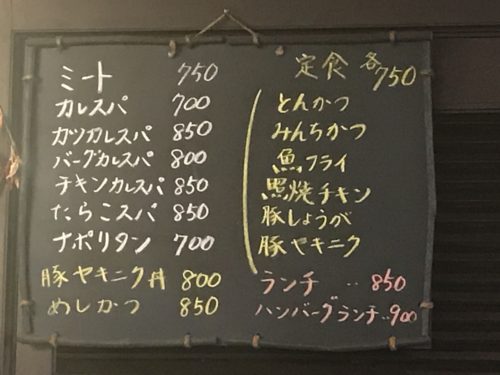 ミート 750
カレスパ 700
カツカレスパ 850
バーグカレスパ 800
チキンカレスパ 850
たらこスパ 850
ナポリタン 700
豚ヤキニク丼 800
めしかつ 850
定食 各750
とんかつ
みんちかつ
魚フライ
照焼チキン
豚しょうが
豚ヤキニク
ランチ ‥ 850
ハンバーグランチ‥900